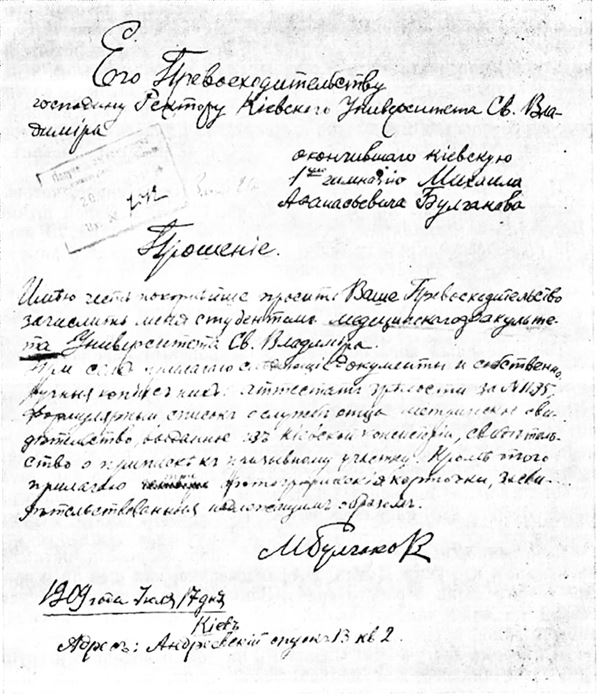 Его Превосходительству
господину Ректору Кіевского Университета Св. Вла-
диміра
окончившаго Кіевскую
1ую гимназію Михаила
Афанасьевича Булгакова
Прошеніе.
Имѣю честь покорнѣйше просить Ваше Превосходительство
зачислить меня студентомъ медицинскаго факульте-
та Университета Св. Владиміра.
При семъ прилагаю слѣдующіе документы и собственно-
ручныя копіи съ нихъ: аттестатъ зрѣлости за №
формулярный списокъ о службѣ отца, метрическое сви-
дѣтельство, выданное изъ Кіевской консисторіи, свидѣтель-
ство о припискѣ къ призывному участку. Кромѣ того
прилагаю фотографическія карточки, засви-
дѣтельствованныя надлежащимъ образомъ.
МБулгаковъ
1909 года Іюля 17 дня
Кіевъ
Адресъ: Андреевскій спускъ 13 кв 2.